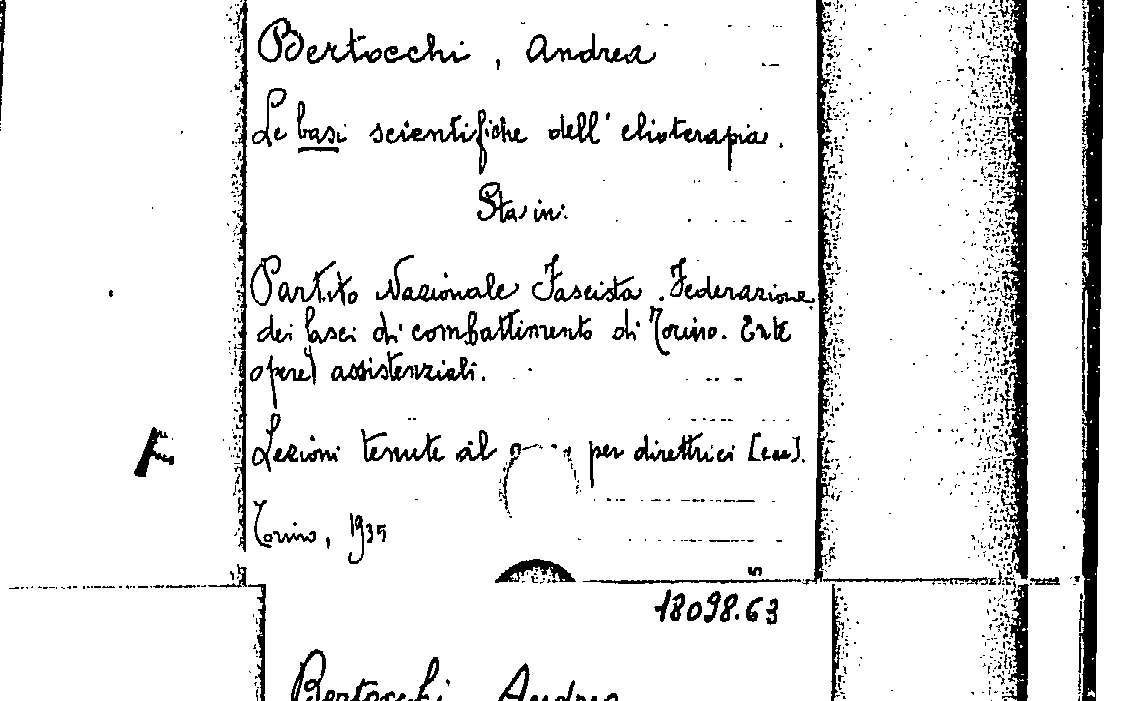 Bertocchi, Andrea
Le basi scientifiche dell'elioterapia.
Sta in:
Partito Nazionale Fascista. Federazione
dei fasci di combattimento di Torino. Ente
opere assistenziali.
Lezioni tenute al per direttrici [ecc].
Torino, 1935
18098.63
Bertocchi Andrea